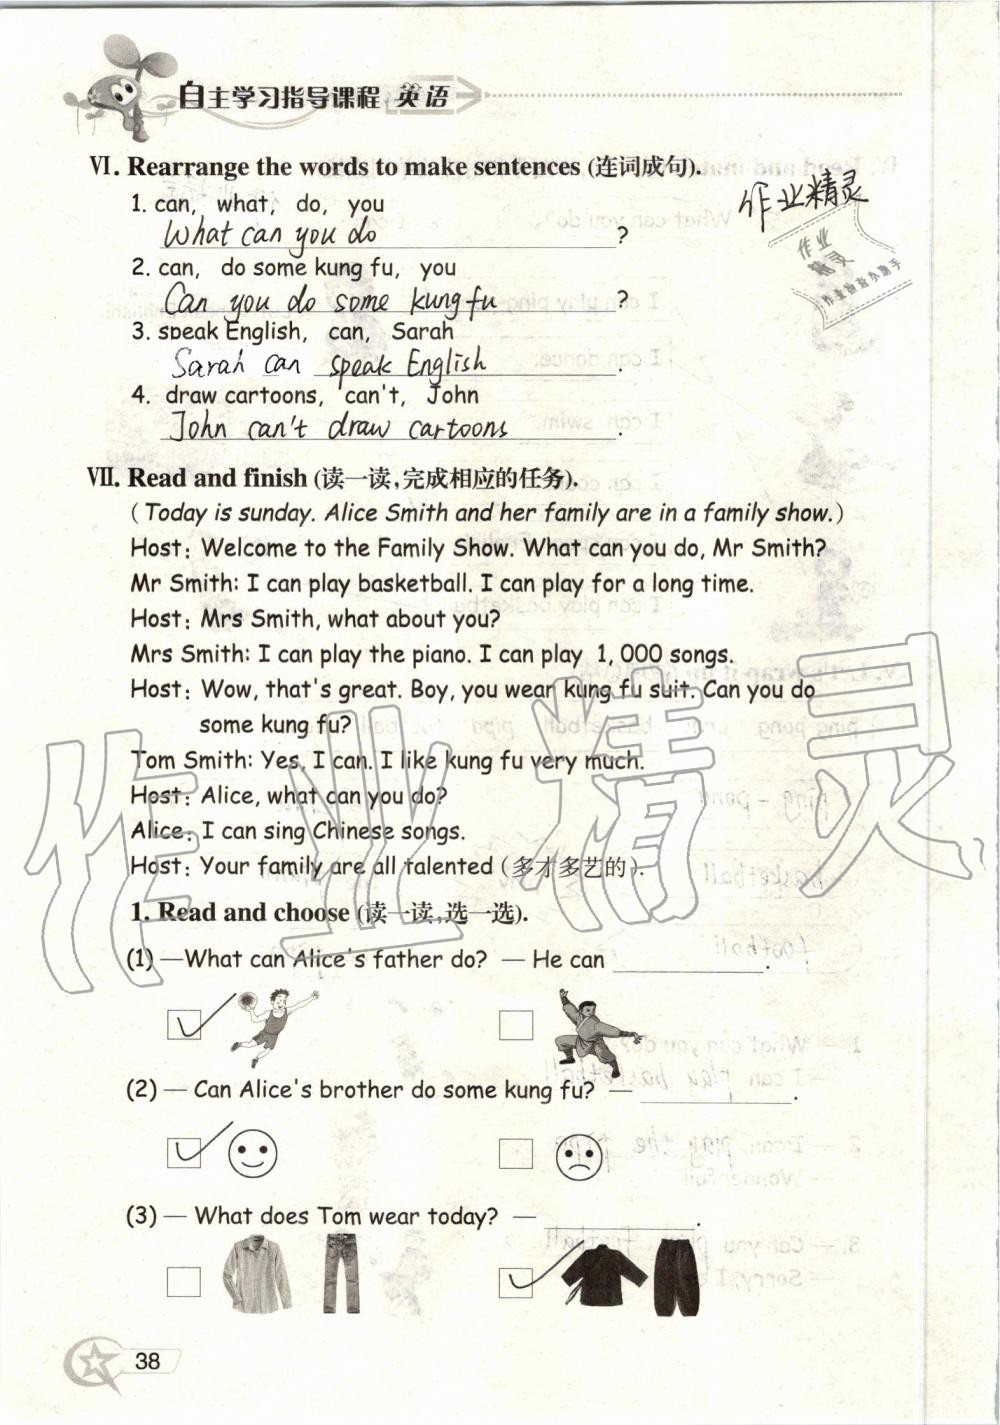 自主学习指导课程 英语
Ⅵ. Rearrange the words to make sentences (连词成句).
作业精灵
1. can, what, do, you
What can you do ?
作业
精灵
作业检查小助手
2. can, do some kung fu, you
Can you do some kung fu ?
3. speak English, can, Sarah
Sarah can speak English .
4. draw cartoons, can't, John
John can't draw cartoons .
Ⅶ. Read and finish (读一读,完成相应的任务).
(Today is sunday. Alice Smith and her family are in a family show.)
Host: Welcome to the Family Show. What can you do, Mr Smith?
Mr Smith: I can play basketball. I can play for a long time.
Host: Mrs Smith, what about you?
Mrs Smith: I can play the piano. I can play 1, 000 songs.
Host: Wow, that's great. Boy, you wear kung fu suit. Can you do
some kung fu?
Tom Smith: Yes, I can. I like kung fu very much.
Host: Alice, what can you do?
Alice: I can sing Chinese songs.
Host: Your family are all talented (多才多艺的).
作业精灵
1. Read and choose (读一读,选一选).
(1) —What can Alice's father do? — He can ____.
(2) — Can Alice's brother do some kung fu? — ____.
(3) — What does Tom wear today? — ____.
38